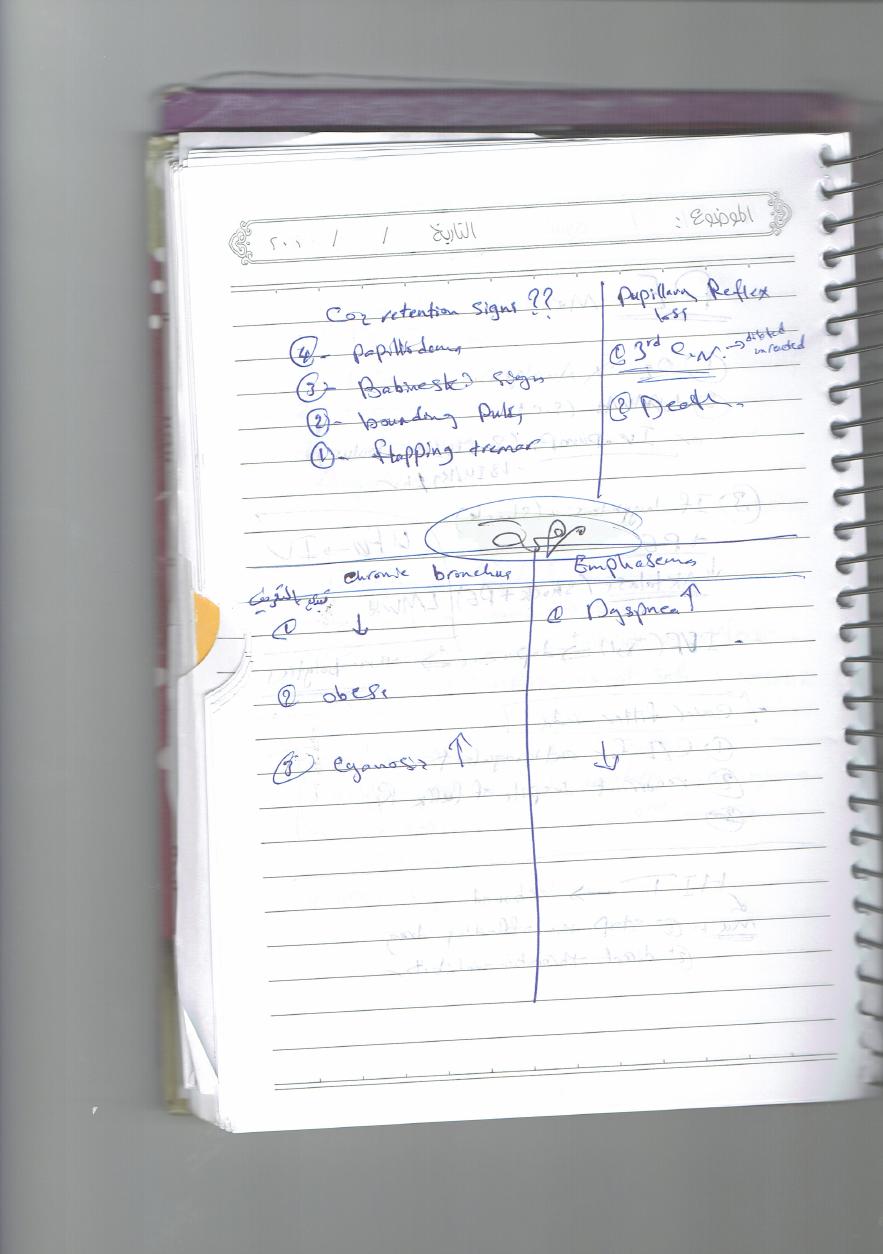 الموضوع :
التاريخ / / ٢٠٠
Co2 retention signs ??
④- papilledema
③- Babinski? sign
②- bounding Puls
①- flapping tremor
Pupillary Reflex
loss
① 3rd C.N. → dilated
unreacted
② Death.
chronic bronchus
Emphasema
①
↓
① Dyspnea ↑
② obese
③ cyanosis ↑
↓